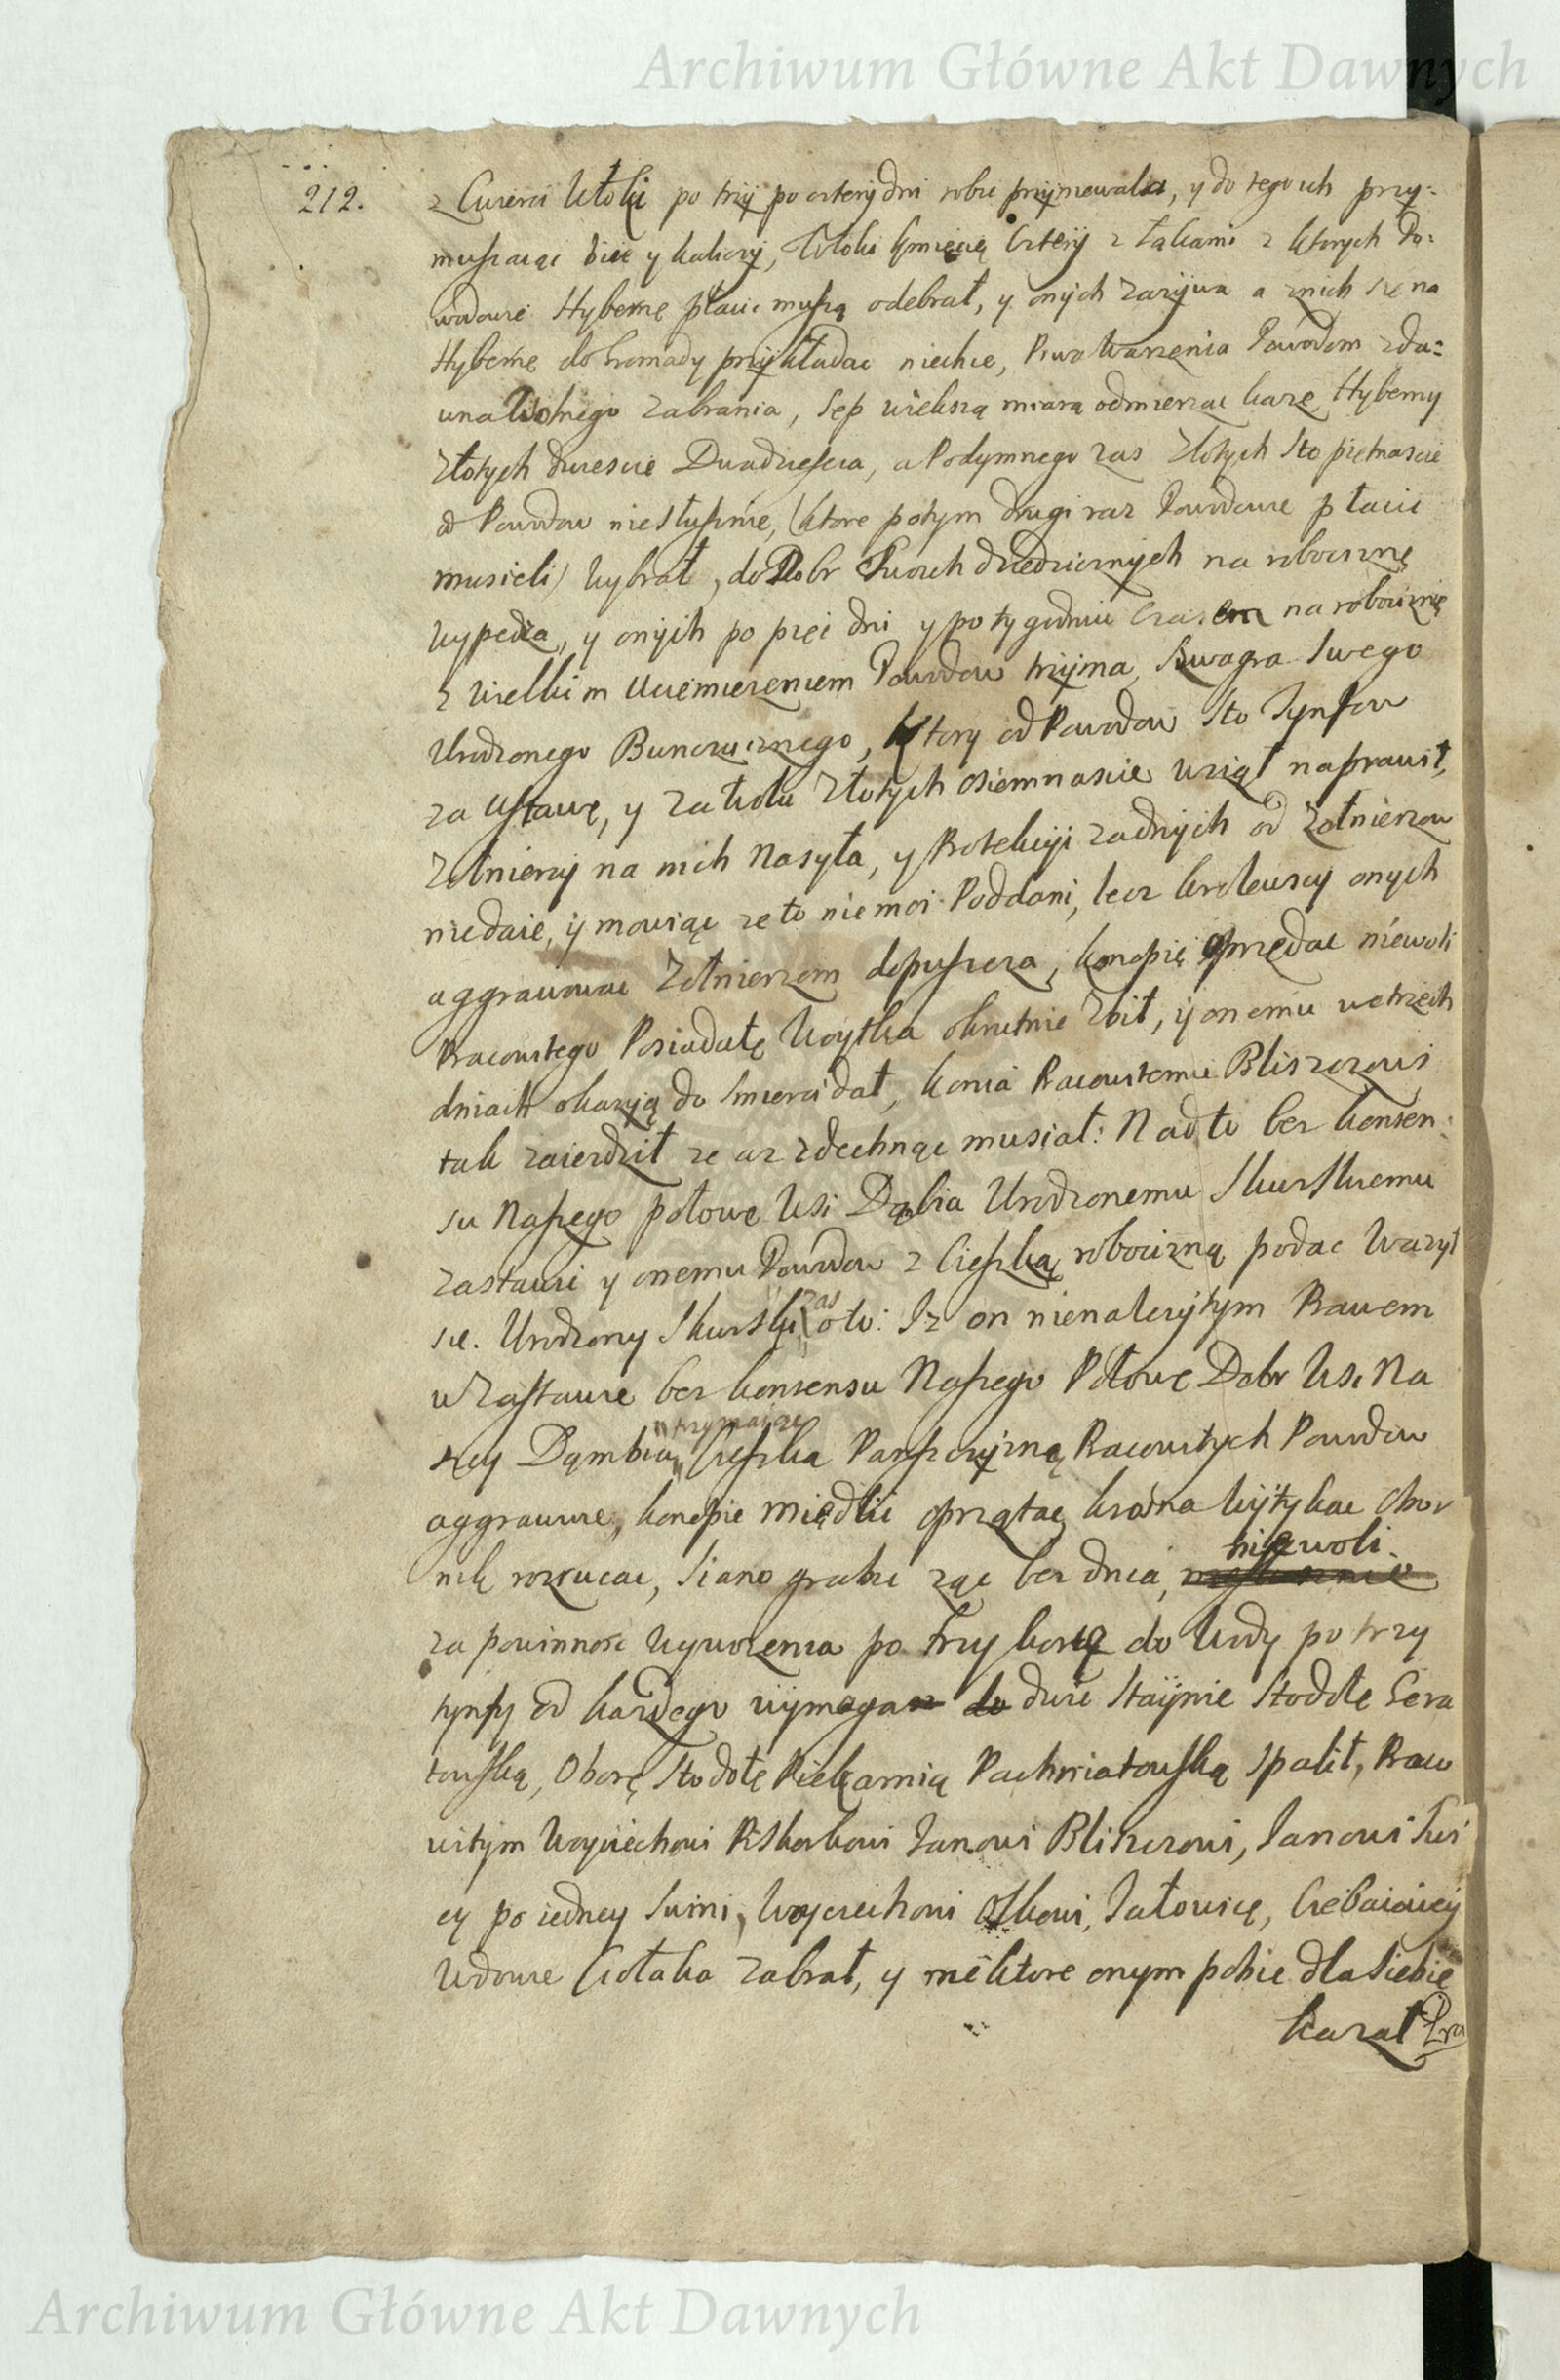 Archiwum Główne Akt Dawnych
212.
z Cwierci Włoki po trzÿ po czterÿ dni robic przÿniewala, y do tego ich przy-
muszaiąc biie y kaliczÿ, Włoki kmiecię czterÿ z Łąkami z ktorych Po-
wodowie Hybernę płacic muszą odebrał, y onÿch zazÿwa a znich się na
Hybernę do hromady przÿkładac niechce, Piwo Warzenia Powodom zda-
wna Wolnego zabrania, Sep większą miarą odmierzac kaze, Hyberny
Złotych dwiescie Dwadziescia, a Podymnego zas Złotych Sto piętnascie
od Powodow niesłusznie, (ktore potym drugi raz Powodowie płacic
musieli) wybrał, do Dobr Swoich dziedzicznych na roboczznę
wypędza, y onÿch po pięc dni y po tygodniu czasem na robociznie
z wielkim Uciemiezeniem Powodow trzÿma, Swagra Swego
Urodzonego Bunczucznego, ktory od Powodow Sto Tynfow
za Ustawę, y za kotu Złotych osiemnascie wziął naprawił,
Zołnierzÿ na nich nasyła, y Protekcÿi zadnÿch od Zołnierzow
niedaie, ÿ mowiąc ze to nie moi Poddani, lecz krolewscy onych
aggrawowac Zołnierzom dopuszcza, konopię oprzędac niewoli
Pracowitego Posiadałę Woytka okrutnie Zbił, ÿ onemu we trzech
dniach okazÿą do Smierci dał, konia Pracowitemu Bliszczowi
tak zaiezdził ze az zdechnąc musiał: Nad to bez konsen-
su Naszego połowę Wsi Dąbia Urodzonemu Skurskiemu
zastawi y onemu Powodow z Cięszką robocizną podac wazył
się. Urodzony Skurski zas oto: Iz on nienalezÿtym Prawem
w Zastawie bez konsensu Naszego Połowe Dobr Wsi Na
szey Dąmbia trzymaiąc Cieszka Panszczyzną Pracowitych Powodow
aggrawuie, konopie międlic oprzątac, krosna wÿtykac Obor
nik rozrucac, Siano grabic ząc bez dnia, niewoli
za powinnosc wywozenia po trzy korce do Wody po trzy
tynfy od kazdego wÿmaga dwie Staÿnie Stodołe Sera
towską, Oborę Stodołę Piekarnią Pachniatowską spalił, Praco
witÿm Woyciechowi Piskorkowi Janowi Bliszczowi, Janowi Swi
cy po iedney Swini, Woyciechowi Oskowi, Jałowicę,
Wdowie Ciołaka zabrał, y niektore onym pobic dla siebie
kazał Pra
Archiwum Główne Akt Dawnych